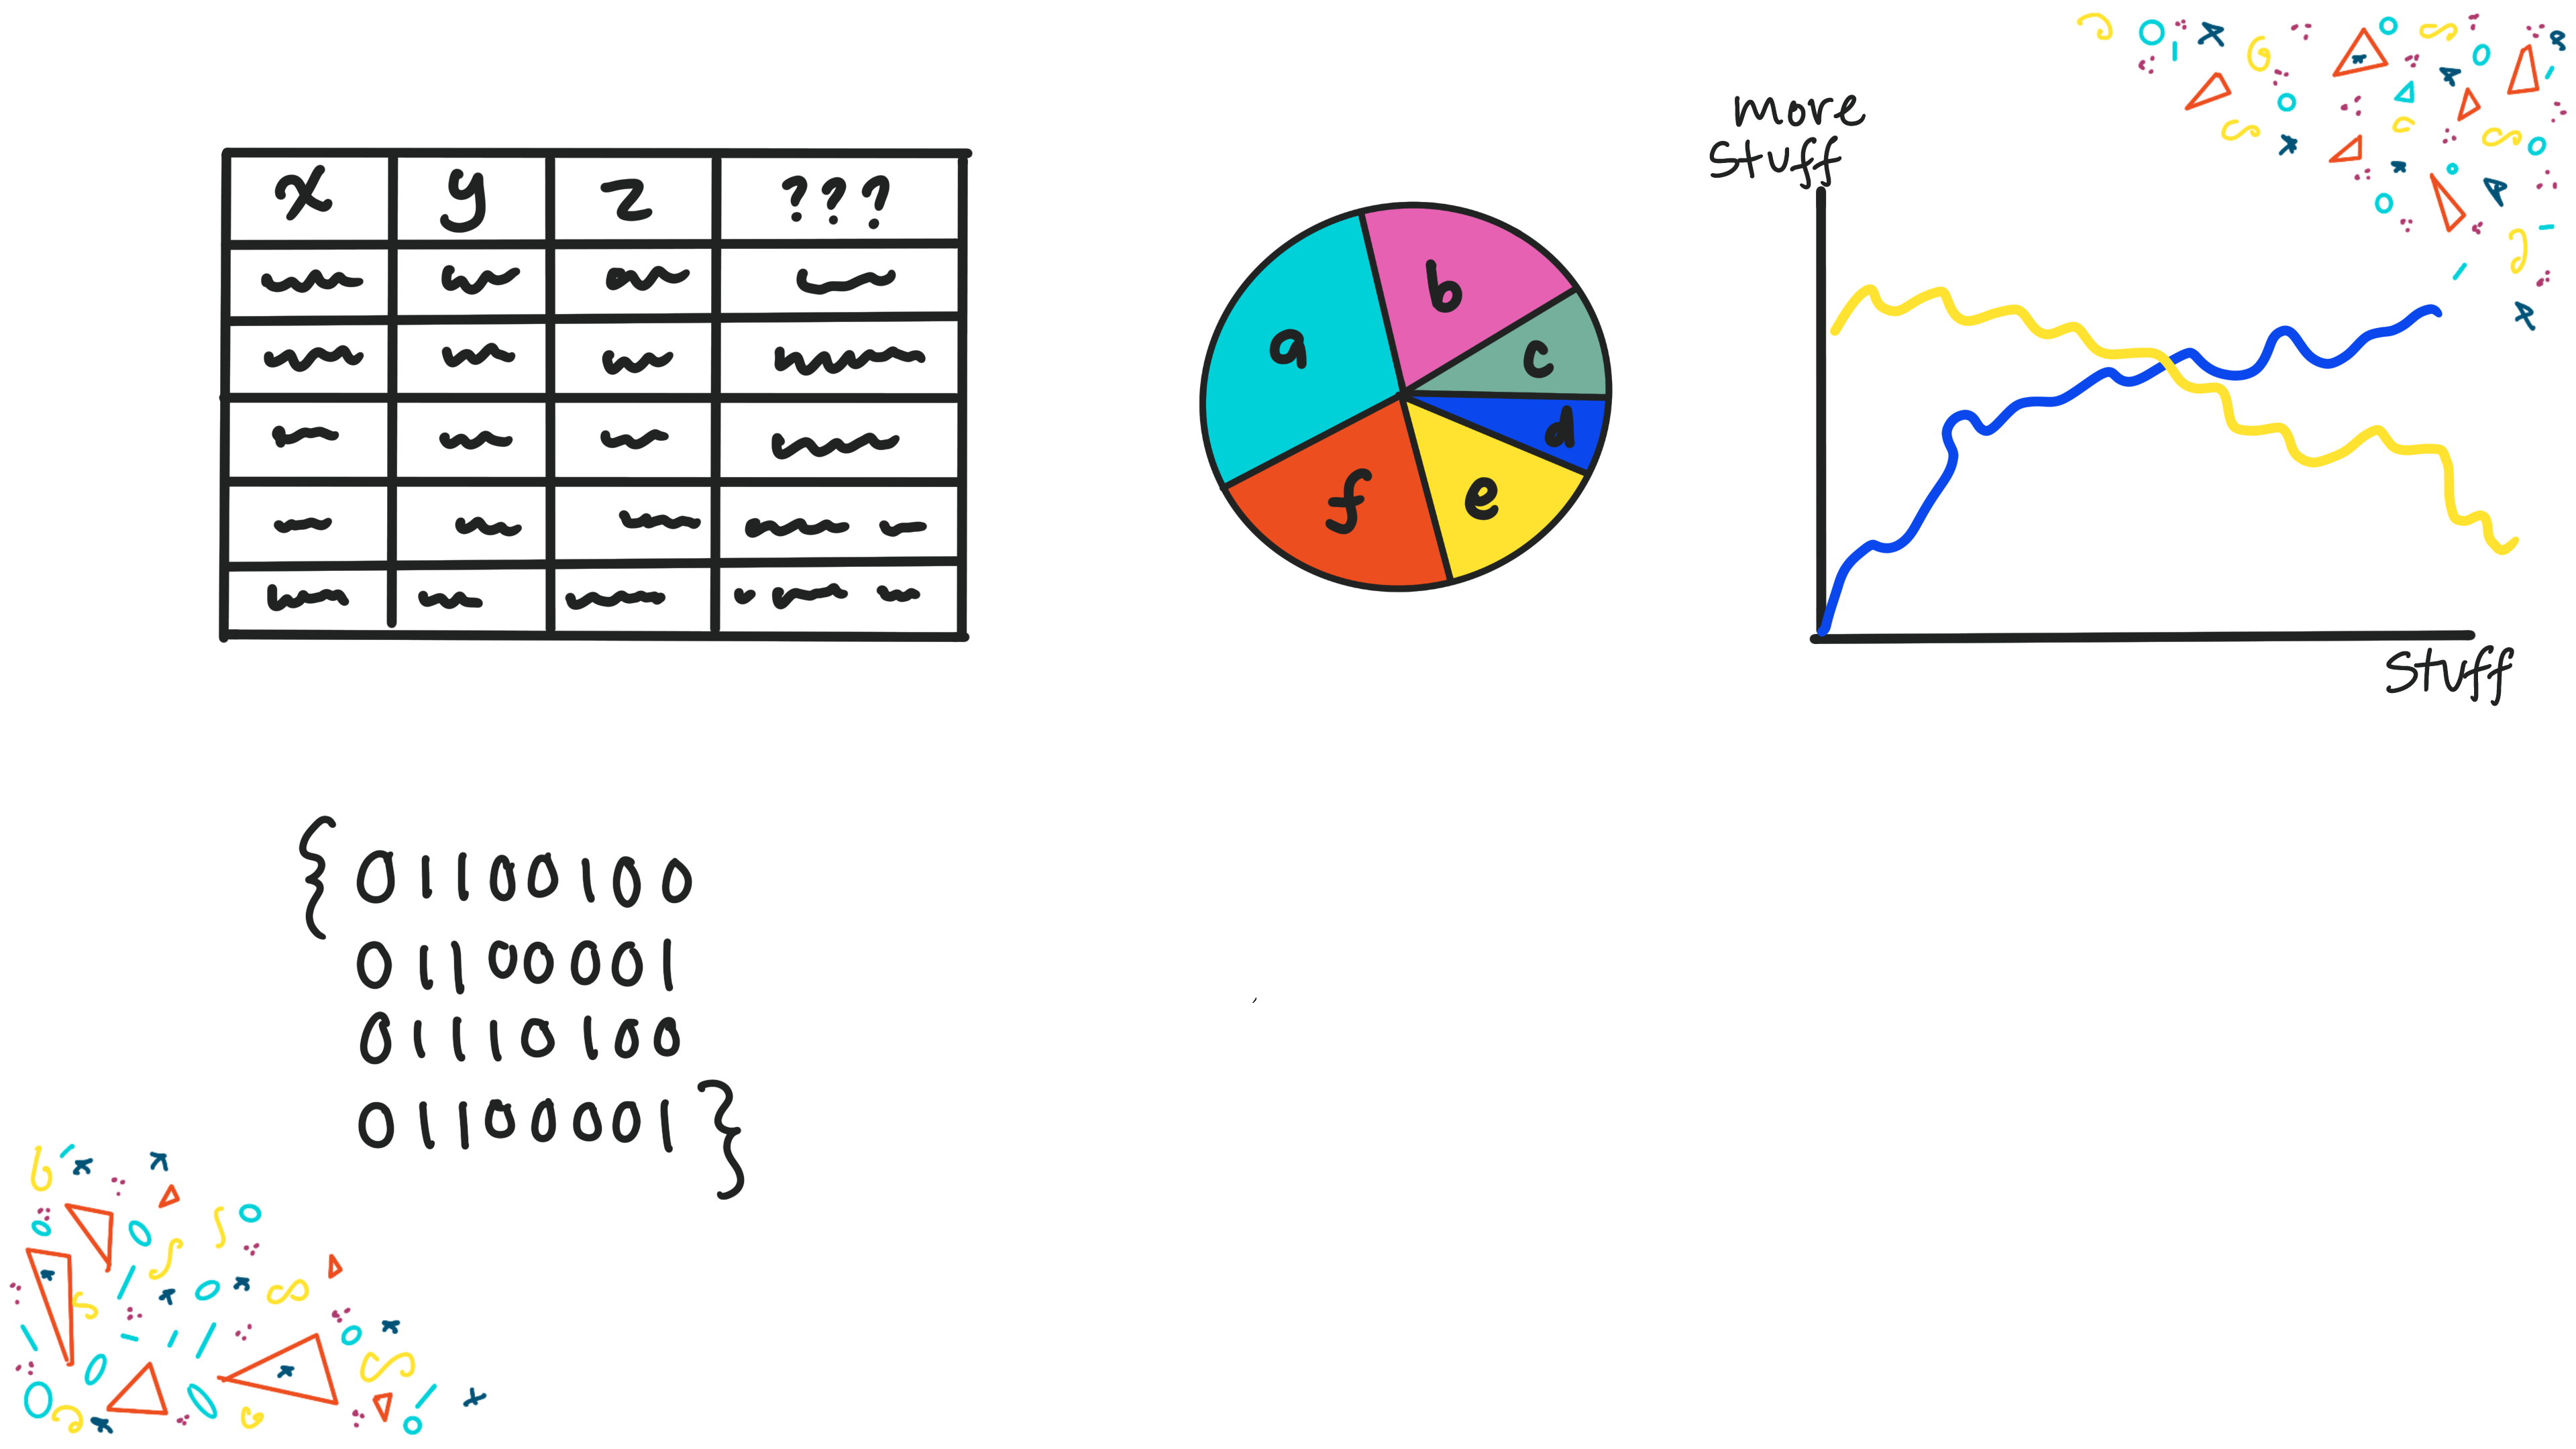 x y z ???
a
b
c
d
e
f
more
stuff
stuff
{ 01100100
01100001
01110100
01100001 }